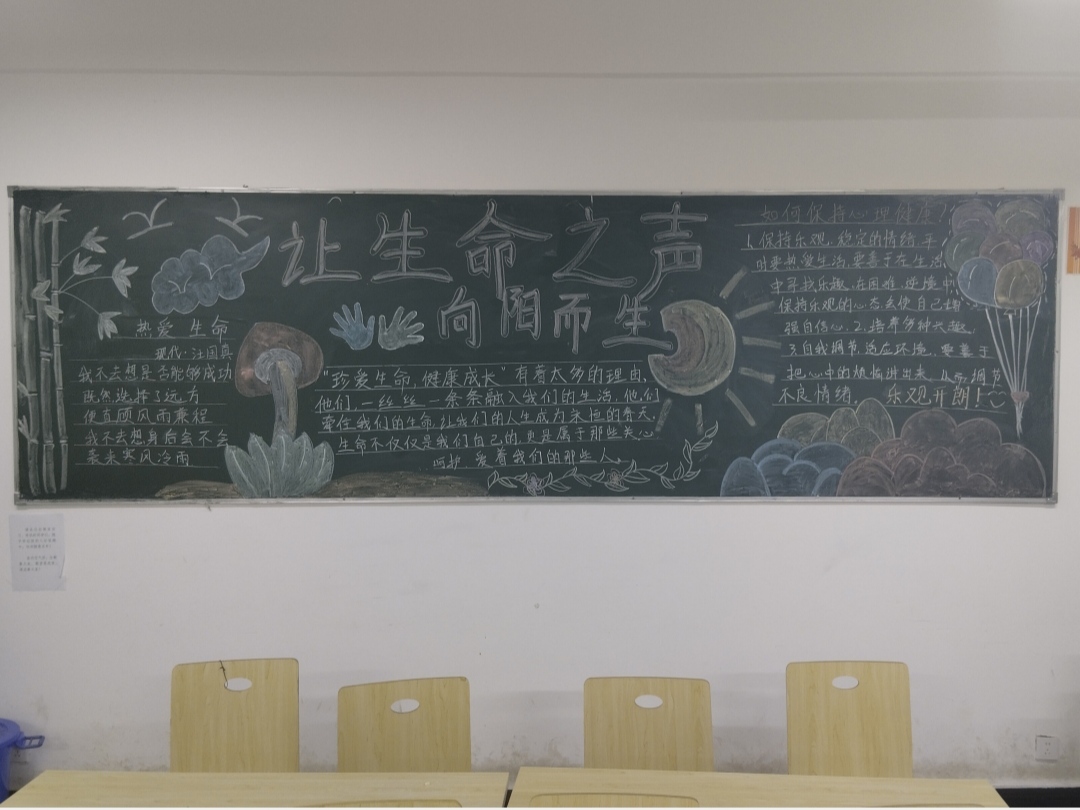 让生命之声
向阳而生
热爱生命
现代·汪国真
我不去想是否能够成功
既然选择了远方
便直顾风雨兼程
我不去想身后会不会
袭来寒风冷雨
"珍爱生命,健康成长"有着太多的理由,
他们,一丝丝一条条融入我们的生活,他们
牵住我们的生命,让我们的人生成为永恒的春天,
生命不仅仅是我们自己的,更是属于那些关心
呵护 爱着我们的那些人
如何保持心理健康!
1.保持乐观,稳定的情绪 平
时要热爱生活,要善于在生活
中寻找乐趣,在困难,逆境中
保持乐观的心态去使自己增
强自信心,2.培养多种兴趣,
3.自我调节,适应环境,要善于
把心中的烦恼讲出来,从而调节
不良情绪. 乐观开朗!